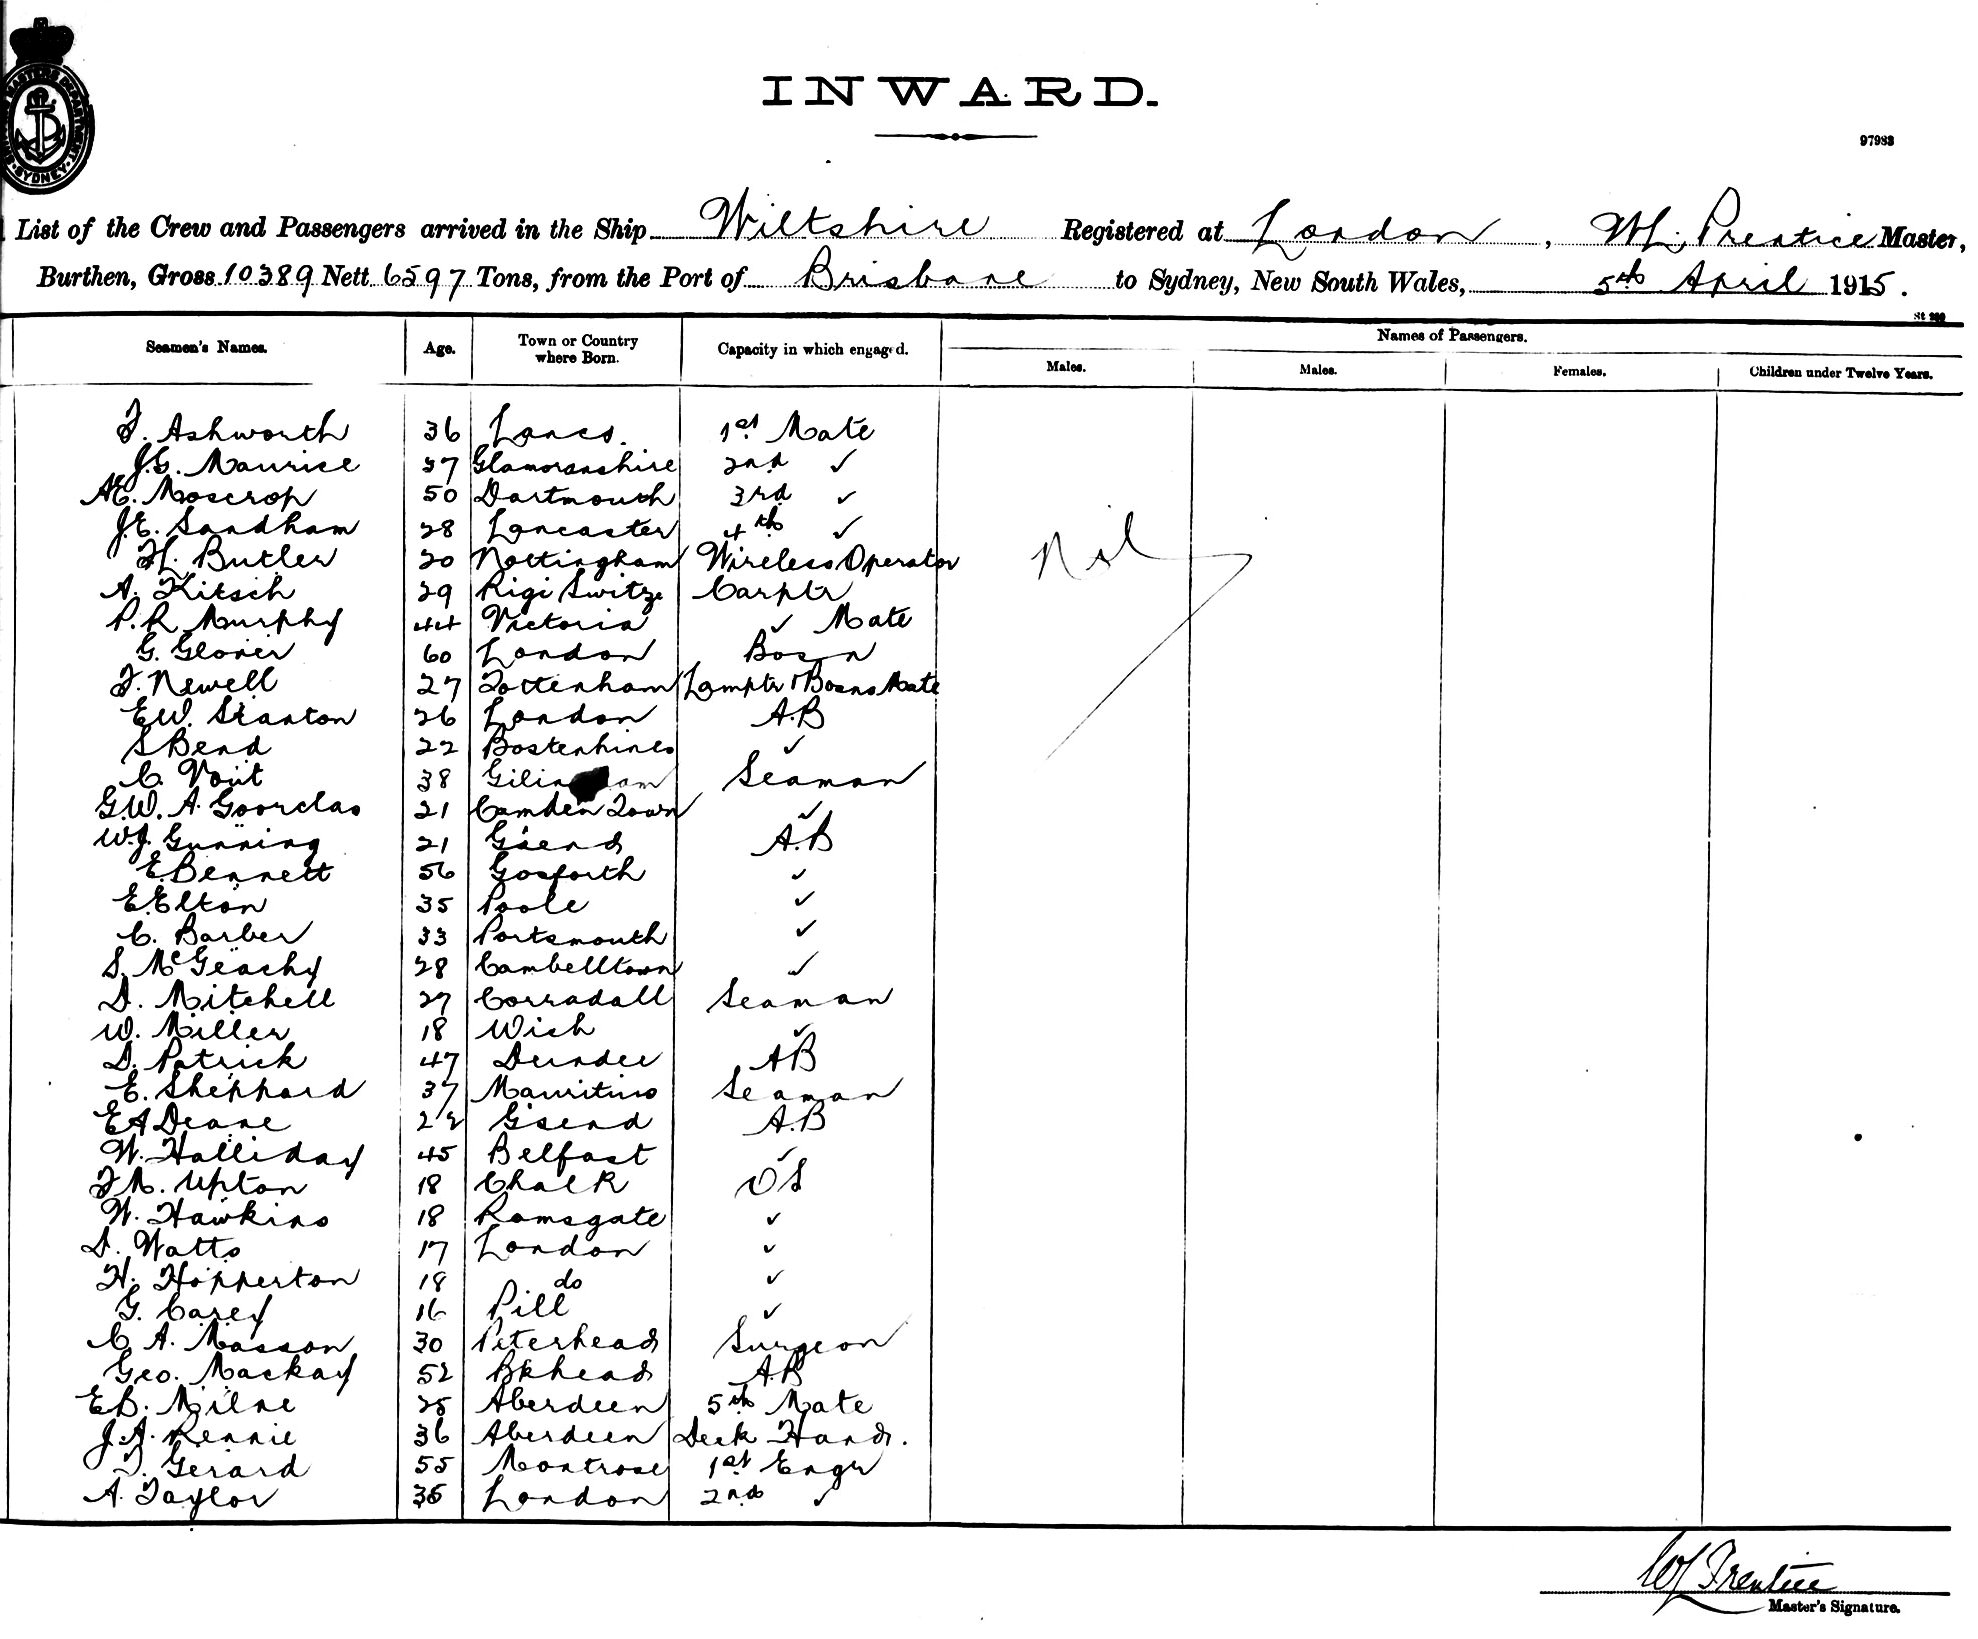 INWARD.
97983
List of the Crew and Passengers arrived in the Ship Wiltshire Registered at London, WL. Prentice Master,
Burthen, Gross 10389 Nett 6597 Tons, from the Port of Brisbane to Sydney, New South Wales, 5th April 1915.
Seamen's Names. Age. Town or Country where Born. Capacity in which engaged. Names of Passengers.
Males. Males. Females. Children under Twelve Years.
F. Ashworth 36 Lancs. 1st Mate
J.G. Maurice 37 Glamoranshire 2nd ✓
A.E. Moscrop 50 Dartmouth 3rd ✓
J.E. Sandham 28 Lancaster 4th ✓
H. Butler 20 Nottingham Wireless Operator Nil
A. Kitsch 29 Rigi Switze Carptr
P.R. Murphy 44 Victoria ✓ Mate
G. Glover 60 London Bosn
F. Newell 27 Tottenham Lamptr & Bosns Mate
E.W. Stanton 26 London A.B
S Bend 22 ✓
C. Vout 38 Seaman
G.W. A. 21 Camden Town ✓
W.J. Gunning 21 G'send A.B
E. Bennett 56 Gosforth ✓
E. Elton 35 Poole ✓
C. Barber 33 Portsmouth ✓
S. McGeachy 28 Cambelltown ✓
D. Mitchell 27 Corradall Seaman
W. Miller 18 Wick ✓
D. Patrick 47 Dundee AB
E. Sheppard 37 Mauritius Seaman
EA Deane 22 G'send A.B
W. Halliday 45 Belfast ✓
F.M. Upton 18 Chalk OS
W. Hawkins 18 Ramsgate ✓
D. Watts 17 London ✓
H. Hopperton 18 do ✓
G. Carey 16 Pill ✓
C. A. Masson 30 Peterhead Surgeon
Geo. Mackay 52 Bkhead A.B
E.B. Milne 25 Aberdeen 5th Mate
J.A. Rennie 36 Aberdeen Deck Hand.
Gerard 55 Montrose 1st Engr
A. Taylor 36 London 2nd ✓
WL Prentice
Master's Signature.